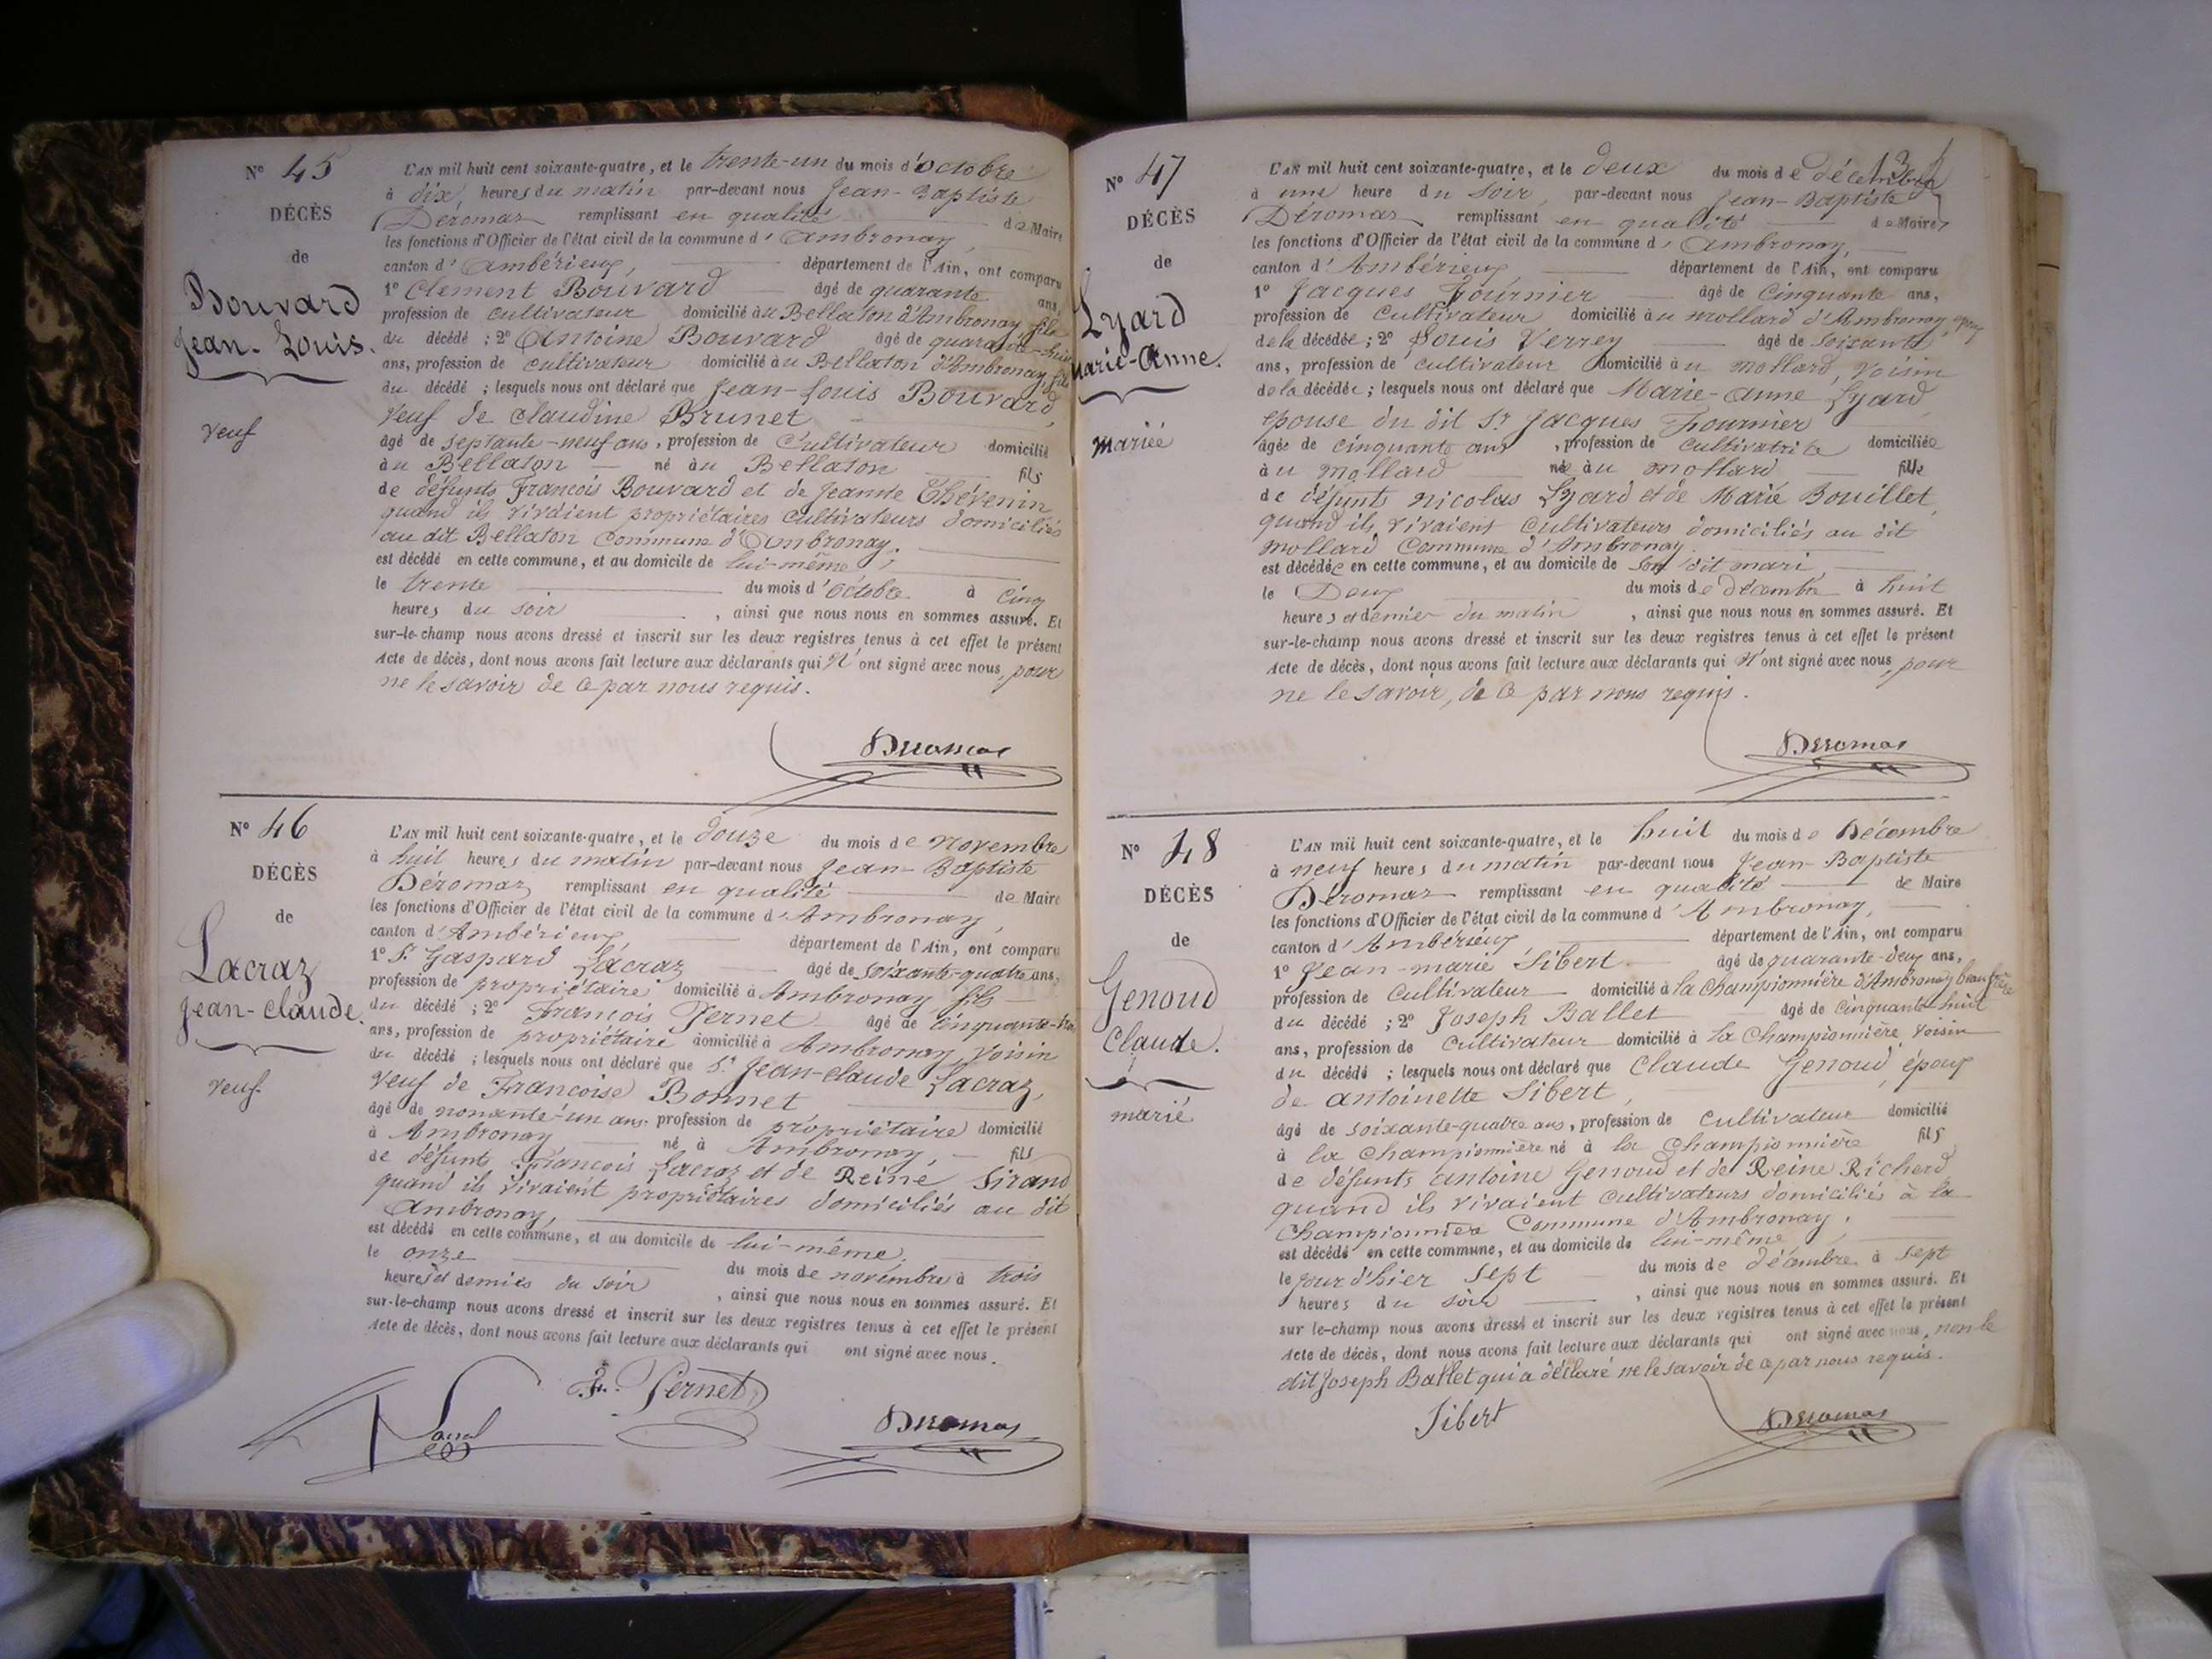 N° 45
DÉCÈS
de
Bouvard
Jean-Louis.
veuf
L'AN mil huit cent soixante-quatre, et le trente-un du mois d'octobre
à dix heures du matin par-devant nous Jean-Baptiste
Déromas remplissant en qualité de Maire
les fonctions d'Officier de l'état civil de la commune d'Ambronay,
canton d'Ambérieux, département de l'Ain, ont comparu
1° Clément Bouvard âgé de quarante ans,
profession de cultivateur domicilié au Bellaton d'Ambronay, fils
du décédé ; 2° Antoine Bouvard âgé de quarante-huit
ans, profession de cultivateur domicilié au Bellaton d'Ambronay, fils
du décédé ; lesquels nous ont déclaré que Jean-Louis Bouvard,
veuf de Claudine Brunet
âgé de septante-neuf ans, profession de Cultivateur domicilié
au Bellaton né au Bellaton fils
de défunts François Bouvard et de Jeanne Thévenin
quand ils vivaient propriétaires cultivateurs domiciliés
au dit Bellaton Commune d'Ambronay.
est décédé en cette commune, et au domicile de lui-même,
le trente du mois d'octobre à cinq
heures du soir, ainsi que nous nous en sommes assuré. Et
sur-le-champ nous avons dressé et inscrit sur les deux registres tenus à cet effet le présent
Acte de décès, dont nous avons fait lecture aux déclarants qui n'ont signé avec nous, pour
ne le savoir de ce par nous requis.
Déromas
N° 46
DÉCÈS
de
Lacraz
Jean-Claude.
veuf.
L'AN mil huit cent soixante-quatre, et le douze du mois de novembre
à huit heures du matin par-devant nous Jean-Baptiste
Déromas remplissant en qualité de Maire
les fonctions d'Officier de l'état civil de la commune d'Ambronay,
canton d'Ambérieux département de l'Ain, ont comparu
1° Sr Gaspard Lacraz âgé de soixante-quatre ans,
profession de propriétaire domicilié à Ambronay fils
du décédé ; 2° François Pernet âgé de cinquante-
ans, profession de propriétaire domicilié à Ambronay, voisin
du décédé ; lesquels nous ont déclaré que Sr Jean-Claude Lacraz,
veuf de Françoise Bonnet
âgé de nonante-un ans, profession de propriétaire domicilié
à Ambronay né à Ambronay, fils
de défunts François Lacraz et de Reine Sirand
quand ils vivaient propriétaires domiciliés au dit
Ambronay,
est décédé en cette commune, et au domicile de lui-même,
le onze du mois de novembre à trois
heures et demies du soir, ainsi que nous nous en sommes assuré. Et
sur-le-champ nous avons dressé et inscrit sur les deux registres tenus à cet effet le présent
Acte de décès, dont nous avons fait lecture aux déclarants qui ont signé avec nous.
F. Pernet
Déromas
13
N° 47
DÉCÈS
de
Lyard
Marie-Anne.
mariée
L'AN mil huit cent soixante-quatre, et le deux du mois de décembre
à une heure du soir, par-devant nous Jean-Baptiste
Déromas remplissant en qualité de Maire,
les fonctions d'Officier de l'état civil de la commune d'Ambronay,
canton d'Ambérieux, département de l'Ain, ont comparu
1° Jacques Fournier âgé de Cinquante ans,
profession de Cultivateur domicilié au mollard d'Ambronay, époux
de la décédée ; 2° Louis Verrey âgé de soixante
ans, profession de cultivateur domicilié au mollard, voisin
de la décédée ; lesquels nous ont déclaré que Marie-Anne Lyard
épouse du dit Sr Jacques Fournier
âgée de cinquante ans, profession de cultivatrice domiciliée
au mollard née au mollard fille
de défunts nicolas Lyard et de Marie Bouillet,
quand ils vivaient Cultivateurs domiciliés au dit
mollard Commune d'Ambronay.
est décédée en cette commune, et au domicile de son dit mari,
le Deux du mois de décembre à huit
heures et demies du matin, ainsi que nous nous en sommes assuré. Et
sur-le-champ nous avons dressé et inscrit sur les deux registres tenus à cet effet le présent
Acte de décès, dont nous avons fait lecture aux déclarants qui n'ont signé avec nous, pour
ne le savoir, de ce par nous requis.
Déromas
N° 48
DÉCÈS
de
Genoud
Claude.
marié
L'AN mil huit cent soixante-quatre, et le huit du mois de Décembre
à neuf heures du matin par-devant nous Jean-Baptiste
Déromas remplissant en qualité de Maire
les fonctions d'Officier de l'état civil de la commune d'Ambronay,
canton d'Ambérieux département de l'Ain, ont comparu
1° Jean-marie Sibert âgé de quarante-deux ans,
profession de Cultivateur domicilié à la Championnière d'Ambronay beau frère
du décédé ; 2° Joseph Ballet âgé de cinquante-huit
ans, profession de Cultivateur domicilié à la Championnière, voisin
du décédé ; lesquels nous ont déclaré que Claude Genoud, époux
de antoinette Sibert,
âgé de soixante-quatre ans, profession de Cultivateur domicilié
à la Championnière né à la Championnière fils
de défunts antoine Genoud et de Reine Richerd
quand ils vivaient cultivateurs domiciliés à la
Championnière Commune d'Ambronay.
est décédé en cette commune, et au domicile de lui-même,
le jour d'hier sept du mois de décembre à sept
heures du soir, ainsi que nous nous en sommes assuré. Et
sur le-champ nous avons dressé et inscrit sur les deux registres tenus à cet effet le présent
Acte de décès, dont nous avons fait lecture aux déclarants qui ont signé avec nous, non le
dit Joseph Ballet qui a déclaré ne le savoir de ce par nous requis.
Sibert
Déromas